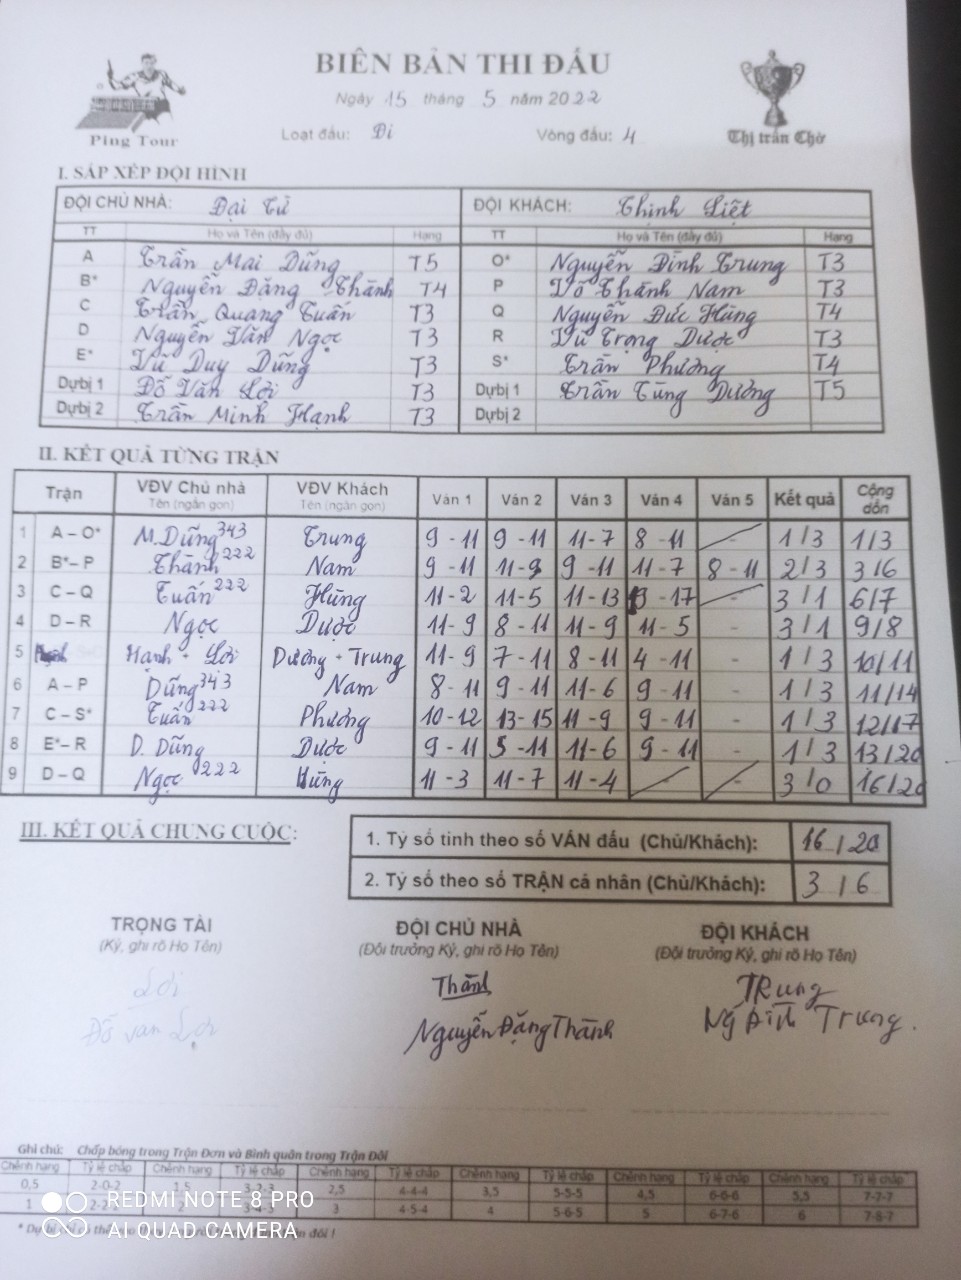 BIÊN BẢN THI ĐẤU
Ping Tour
Ngày 15 tháng 5 năm 2022
Loạt đấu: Đi Vòng đấu: 4
Thị trấn Chờ
I. SẮP XẾP ĐỘI HÌNH
ĐỘI CHỦ NHÀ: Đại Từ ĐỘI KHÁCH: Thịnh Liệt
TT Họ và Tên (đầy đủ) Hạng TT Họ và Tên (đầy đủ) Hạng
A Trần Mai Dũng T5 O* Nguyễn Đình Trung T3
B* Nguyễn Đặng Thành T4 P Võ Thành Nam T3
C Trần Quang Tuấn T3 Q Nguyễn Đức Hùng T4
D Nguyễn Văn Ngọc T3 R Vũ Trọng Dược T3
E* Vũ Duy Dũng T3 S* Trần Phương T4
Dự bị 1 Đỗ Văn Lời T3 Dự bị 1 Trần Tùng Dương T5
Dự bị 2 Trần Minh Hạnh T3 Dự bị 2
II. KẾT QUẢ TỪNG TRẬN
Trận VĐV Chủ nhà VĐV Khách Ván 1 Ván 2 Ván 3 Ván 4 Ván 5 Kết quả Cộng dồn
Tên (ngắn gọn) Tên (ngắn gọn)
1 A – O* M.Dũng 343 Trung 9 - 11 9 - 11 11 - 7 8 - 11 - 1/3 1/3
2 B* – P Thành 222 Nam 9 - 11 11 - 9 9 - 11 11 - 7 8 - 11 2/3 3/6
3 C – Q Tuấn 222 Hùng 11 - 2 11 - 5 11 - 13 - 17 - 3/1 6/7
4 D – R Ngọc Dược 11 - 9 8 - 11 11 - 9 11 - 5 - 3/1 9/8
5 Hạnh + Lời Dương + Trung 11 - 9 7 - 11 8 - 11 4 - 11 - 1/3 10/11
6 A – P Dũng 343 Nam 8 - 11 9 - 11 11 - 6 9 - 11 - 1/3 11/14
7 C – S* Tuấn 222 Phương 10 - 12 13 - 15 11 - 9 9 - 11 - 1/3 12/17
8 E* – R D. Dũng Dược 9 - 11 5 - 11 11 - 6 9 - 11 - 1/3 13/20
9 D – Q Ngọc 222 Hùng 11 - 3 11 - 7 11 - 4 - - 3/0 16/20
III. KẾT QUẢ CHUNG CUỘC:
1. Tỷ số tính theo số VÁN đấu (Chủ/Khách): 16 / 20
2. Tỷ số theo số TRẬN cá nhân (Chủ/Khách): 3 / 6
TRỌNG TÀI ĐỘI CHỦ NHÀ ĐỘI KHÁCH
(Ký, ghi rõ Họ Tên) (Đội trưởng Ký, ghi rõ Họ Tên) (Đội trưởng Ký, ghi rõ Họ Tên)
Lời Thành TRung
Đỗ Văn Lời Nguyễn Đặng Thành Ng Đình Trung.
Ghi chú: Chấp bóng trong Trận Đơn và Bình quân trong Trận Đôi
Chênh hạng Tỷ lệ chấp Chênh hạng Tỷ lệ chấp Chênh hạng Tỷ lệ chấp Chênh hạng Tỷ lệ chấp Chênh hạng Tỷ lệ chấp Chênh hạng Tỷ lệ chấp
0,5 2-0-2 1,5 3-2-3 2,5 4-4-4 3,5 5-5-5 4,5 6-6-6 5,5 7-7-7
1 3 4-5-4 4 5-6-5 5 6-7-6 6 7-8-7
* Dự bị
REDMI NOTE 8 PRO
AI QUAD CAMERA